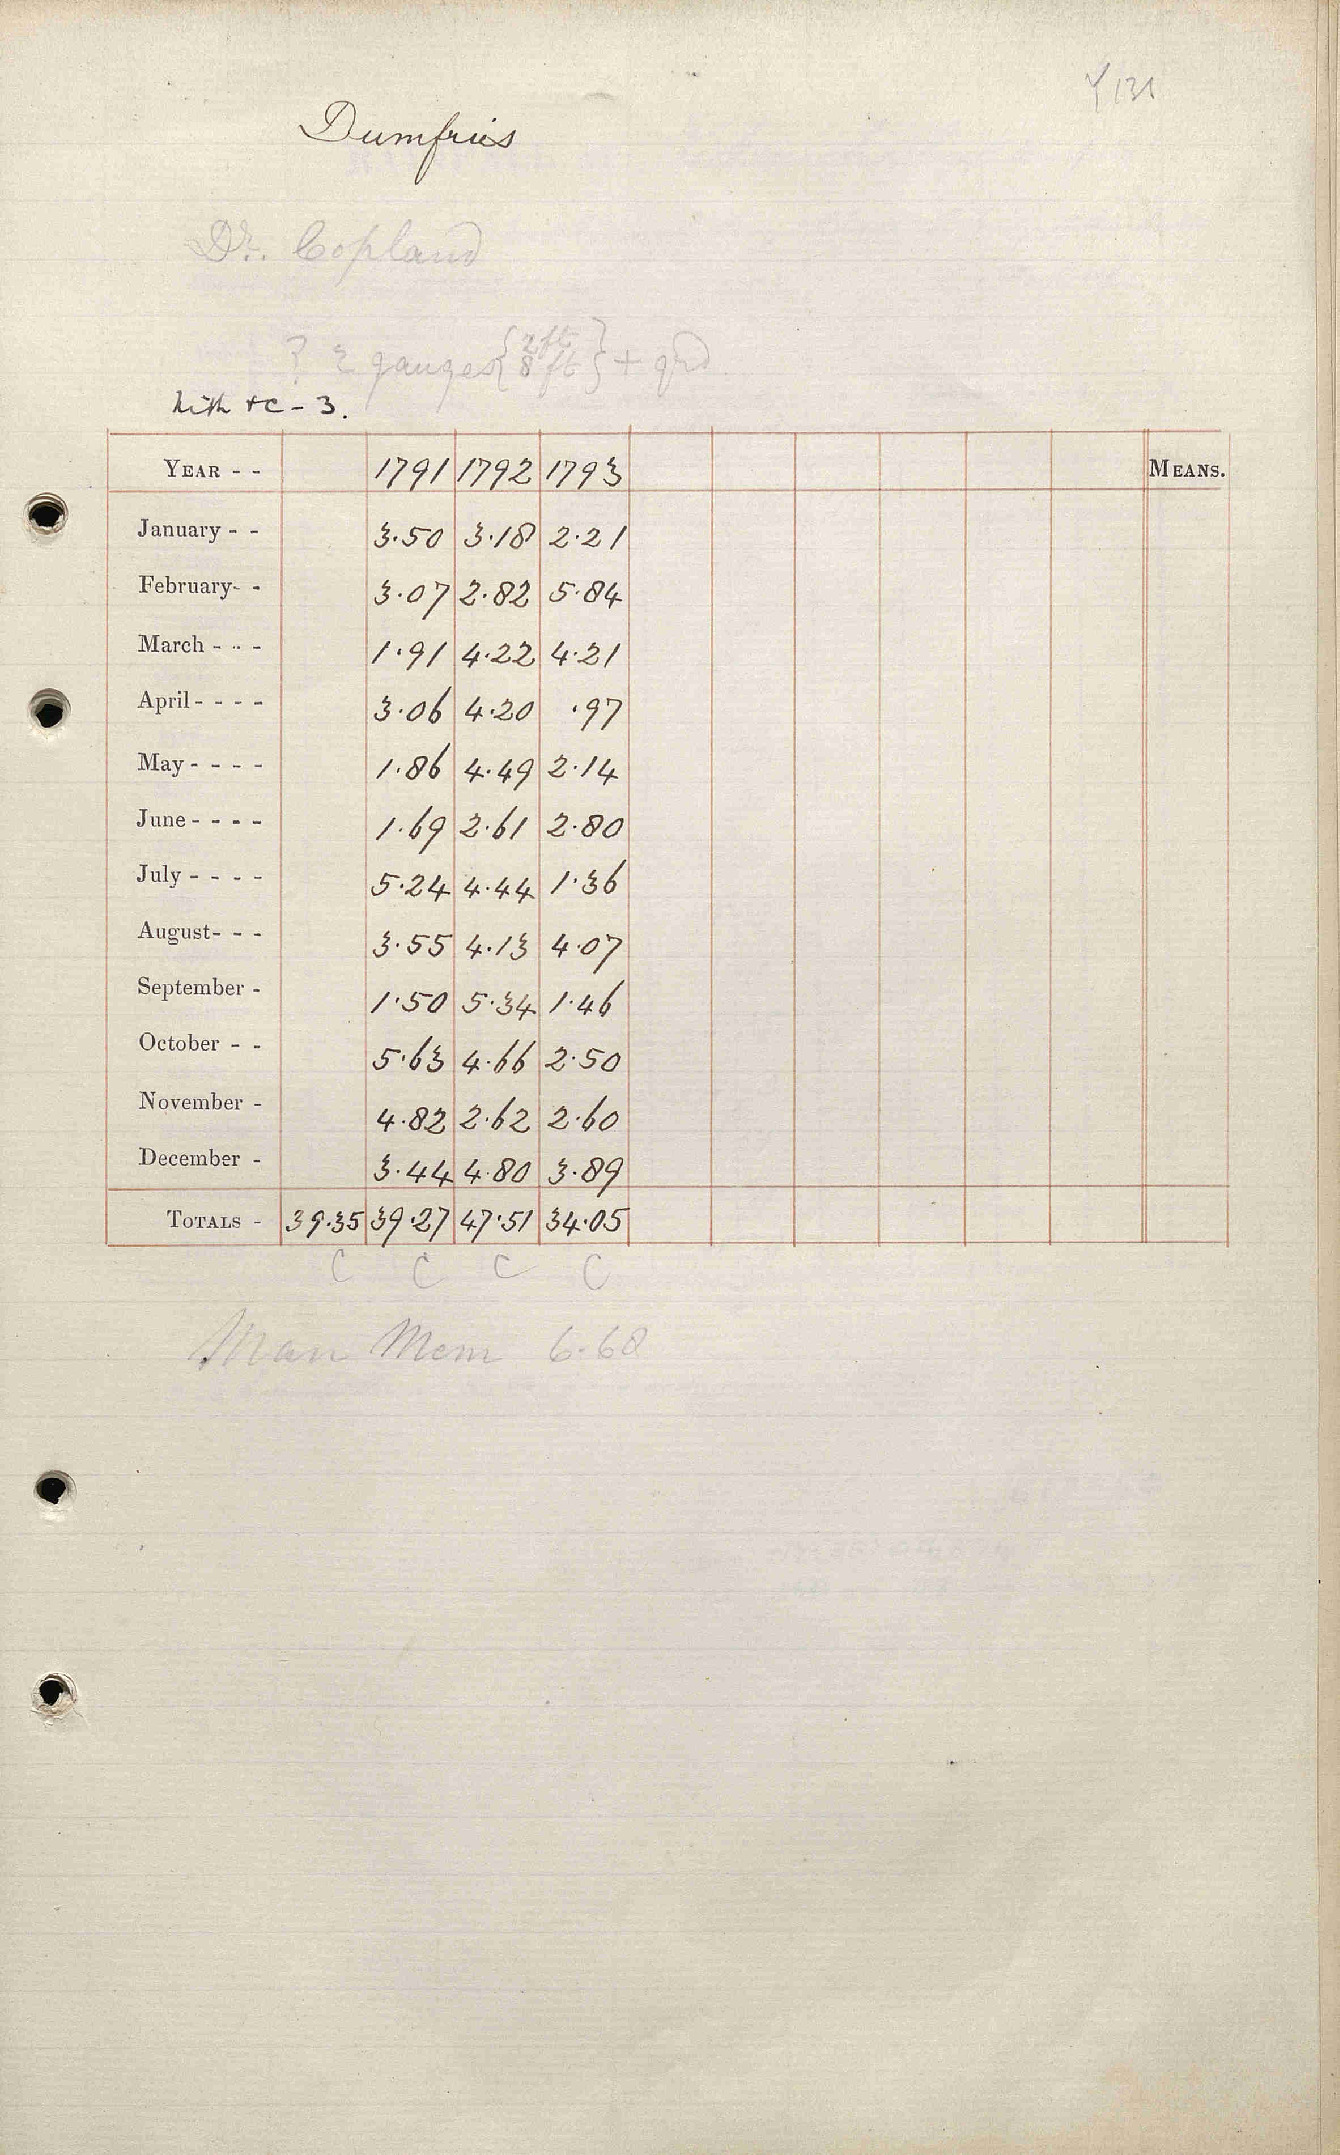 Y131
Dumfries
Dr. Copland
? 2 gauges { 2 ft 8 ft } + grd
Nith &c - 3.
YEAR - - 1791 1792 1793 MEANS.
January - - 3.50 3.18 2.21
February- - 3.07 2.82 5.84
March - - - 1.91 4.22 4.21
April - - - - 3.06 4.20 .97
May - - - - 1.86 4.49 2.14
June - - - - 1.69 2.61 2.80
July - - - - 5.24 4.44 1.36
August- - - 3.55 4.13 4.07
September - 1.50 5.34 1.46
October - - 5.63 4.66 2.50
November - 4.82 2.62 2.60
December - 3.44 4.80 3.89
TOTALS - 39.35 39.27 47.51 34.05
C C C C
Man Mem 6.68